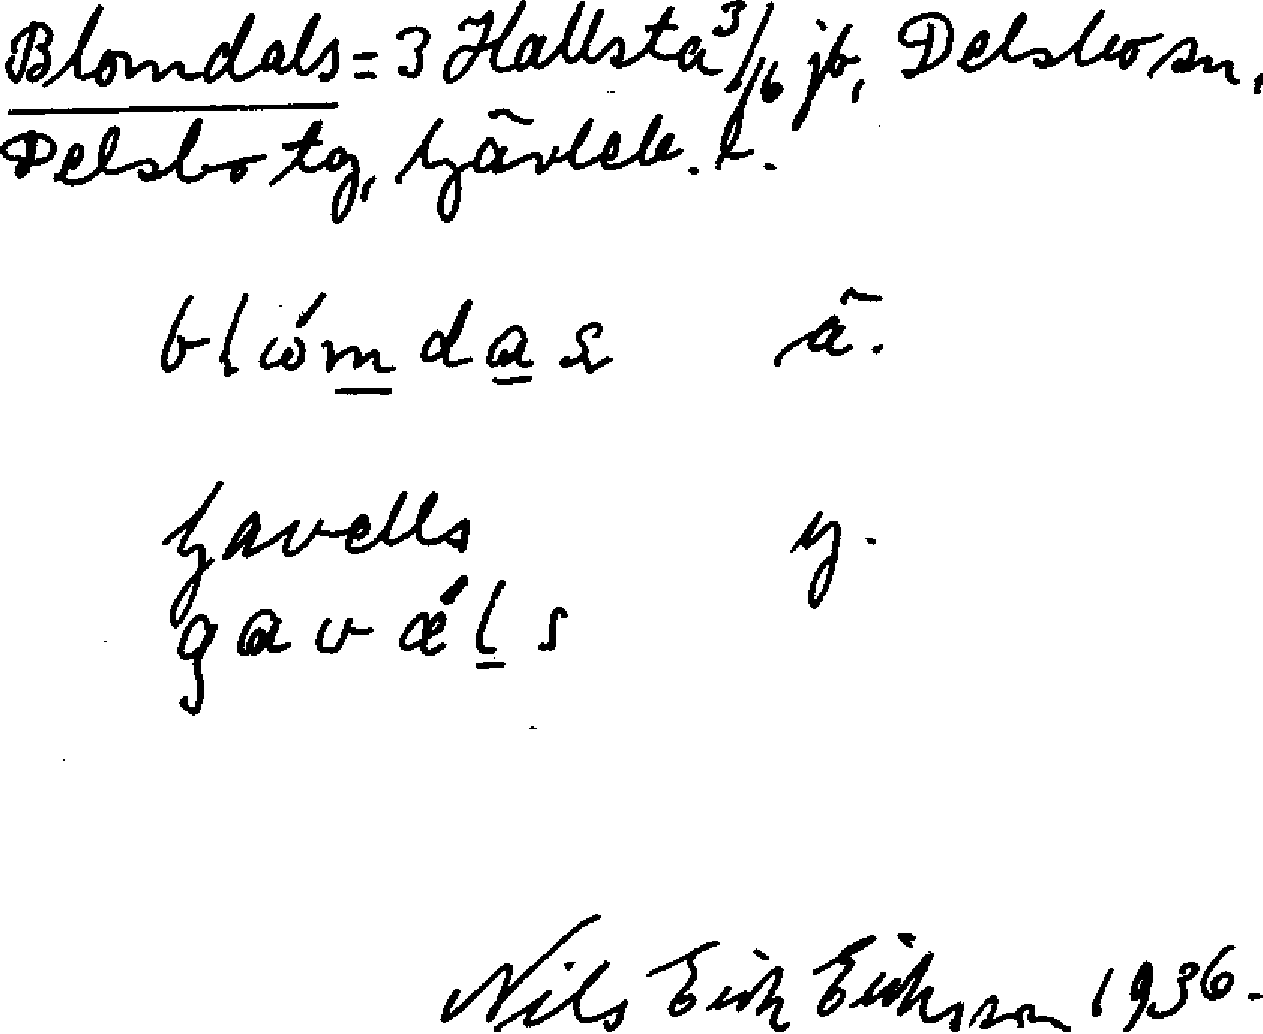 Blomdals = 3 Hallsta 3/16 jb, Delsbo sn,
Delsbo tg, Gävleb. l.
blómdas ä.
Gavells y.
gavǽls
Nils Erik Eriksson 1936.